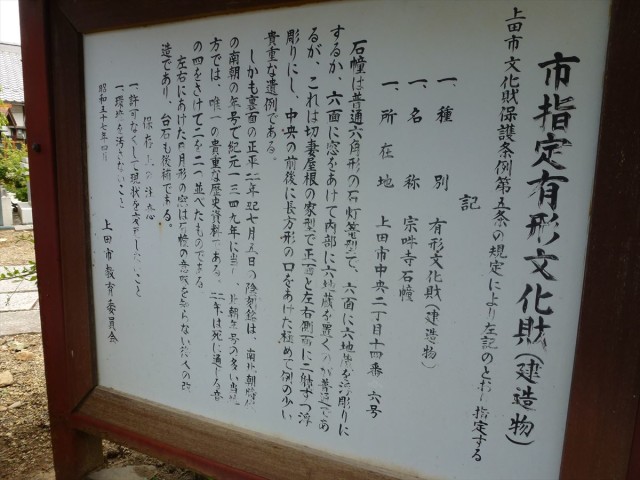 市指定有形文化財(建造物)
上田市文化財保護条例第五条の規定により左記のとおり指定する
記
一、種別 有形文化財(建造物)
一、名称 宗吽寺石幢
一、所在地 上田市中央二丁目十四番六号
石幢は普通六角形の石灯篭型で、六面に六地蔵を浮彫りに
するか、六面に窓をあけて内部に六地蔵を置くのが普通であ
るが、これは切妻屋根の家型で正面と左右側面に二体ずつ浮
彫りにし、中央の前後に長方形の口をあけた極めて例の少い
貴重な遺例である。
しかも裏面の正平二二年記七月五日の陰刻銘は、南北朝時代
の南朝の年号で紀元一三四九年に当り、北朝年号の多い当地
方では、唯一の貴重な歴史資料である。二二年は死に通じる音
の四をさけて二を二つ並べたものである
左右にあけた日月形の窓は石幢の意味を知らない後人の改
造であり、台石も後補である。
保存上の注意
一、許可なくして現状を変更しないこと
一、環境を汚さないこと
昭和五十七年四月
上田市教育委員会